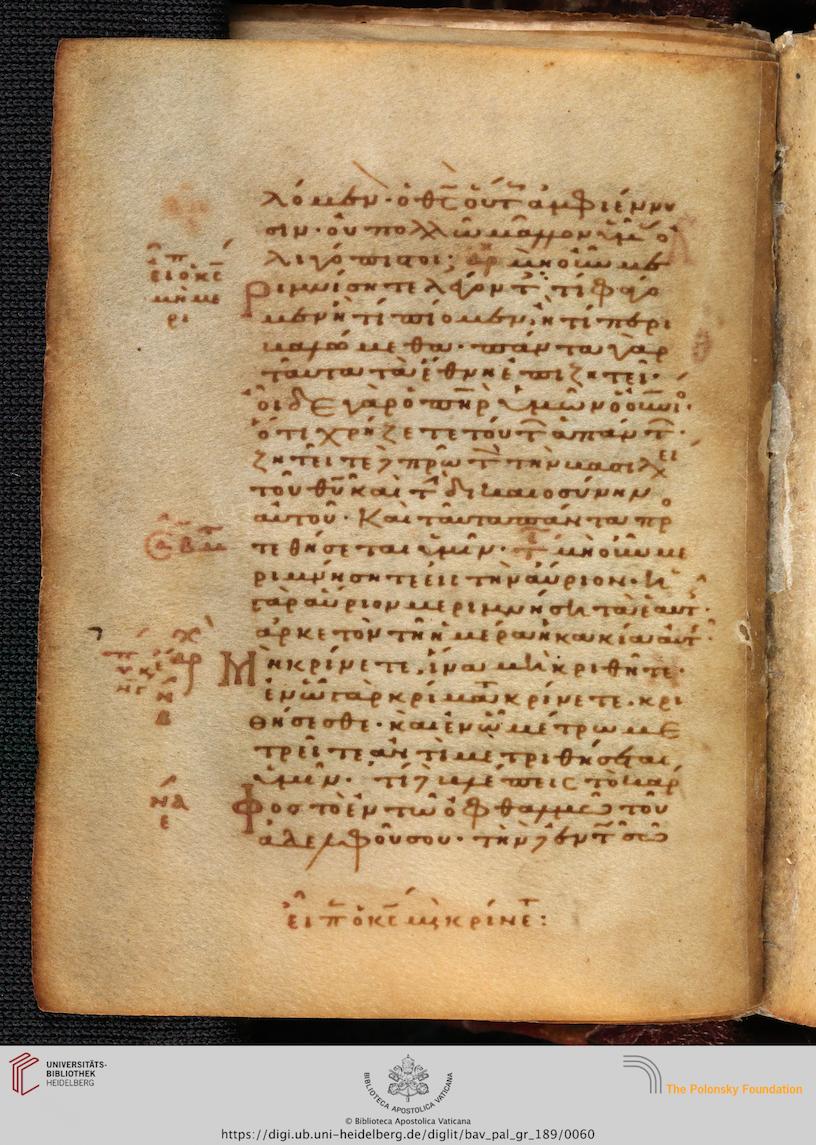 λόμεν· ὁ θς οὕτ ἀμφιέννυ
σιν· οὐ πολλῶ μᾶλλον ὑμ ὀ
λιγόπιστοι; μὴ οὖν με
ριμνήσητε λέγοντ· τί φάγω
μεν ἢ τί πίομεν· ἢ τί περι
βαλώμεθα· πάντα γὰρ
ταῦτα τὰ ἔθνη ἐπιζητεῖ·
οἶδε γὰρ ὁ πηρ ὑμῶν ὁ οὐνιο
ὅτι χρήζετε τούτ ἁπάντ·
ζητεῖτε δὲ πρῶτ τὴν βασιλει
τοῦ θυ καὶ τ δικαιοσύνην
αὐτοῦ· Καὶ ταῦτα πάντα προ
τεθήσεται ὑμῖν· μὴ οὖν με
ριμνήσητε εἰς τὴν αὔριον· ἡ
γὰρ αὔριον μεριμνήσει τὰ ἑαυτ·
ἀρκετὸν τῆ ἡμέρα ἡ κακία αὐτ·
Μὴ κρίνετε, ἵνα μὴ κριθῆτε·
ἐν ὧ γὰρ κρίματ κρίνετε. κρι
θήσεσθε· καὶ ἐν ὧ μέτρω με
τρεῖτε ἀντιμετριθήσεται
ὑμῖν· τί δὲ βλέπεις τὸ κάρ
φος τὸ ἐν τῶ ὀφθαλμῶ τοῦ
ἀδελφοῦ σου· τὴν δὲ ἐν τ σῶ
εἶπ ὁ κς μὴ κρίνετ:
εἶπ
ὁ κς
μὴ με
ρι
ἀρ
ν
β
να
ε
UNIVERSITÄTS-
BIBLIOTHEK
HEIDELBERG
BIBLIOTECA APOSTOLICA VATICANA
© Biblioteca Apostolica Vaticana
The Polonsky Foundation
https://digi.ub.uni-heidelberg.de/diglit/bav_pal_gr_189/0060